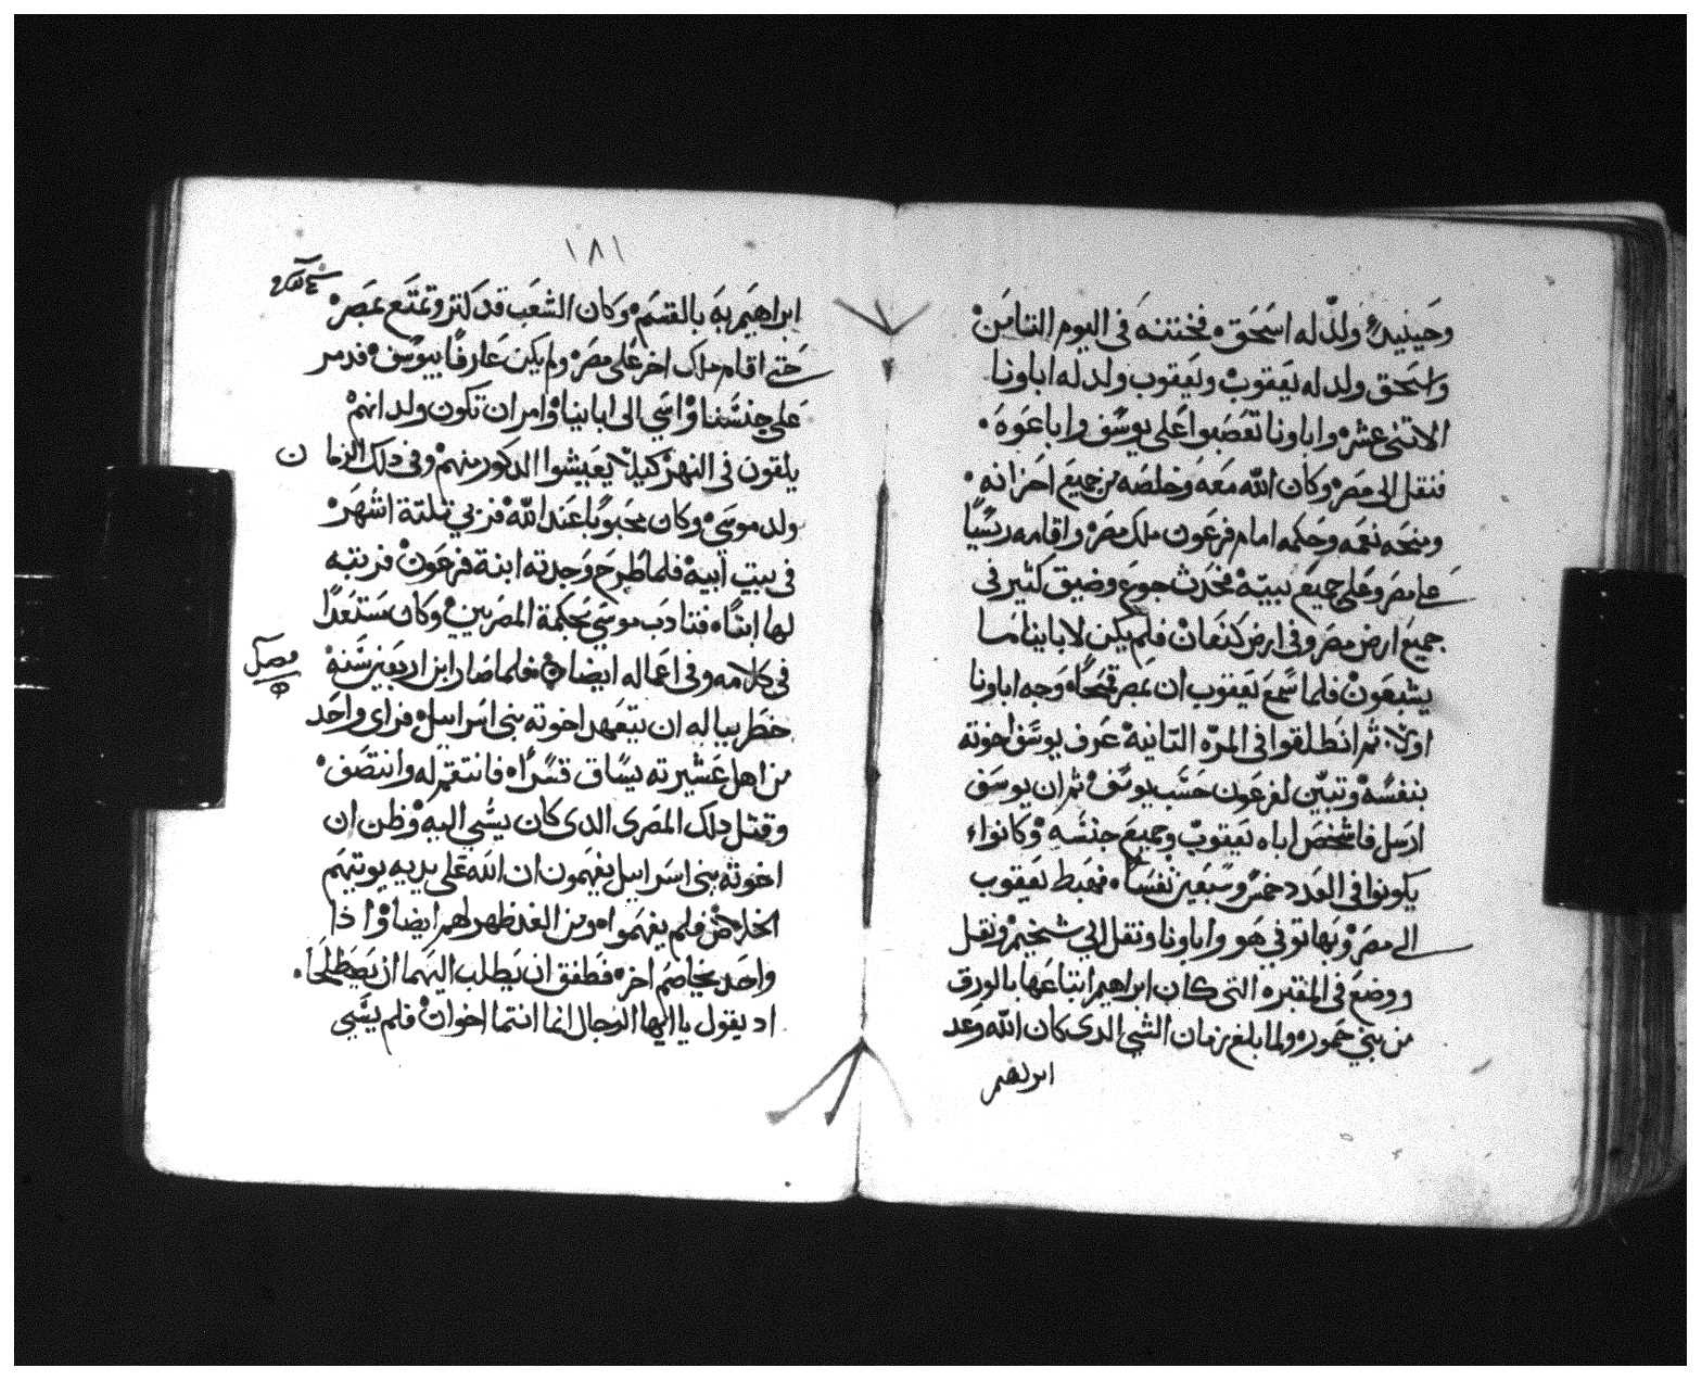 وحينيدٍ ولد له اسحق فختنه فى اليوم الثامن
واسحق ولد له يعقوب ويعقوب ولد له اباونا
الاثنى عشر واباونا تعصبوا على يوسف واباعوه
فنقل الى مصر وكان الله معه وخلصه من جميع احزانه
ومنحه نعمه وحكمه امام فرعون ملك مصر واقامه ريسًا
على مصر وعلى جميع بيته فحدث جوع وضيق كثير فى
جميع ارض مصر وفى ارض كنعان فلم يكن لاباينا ما
يشبعون فلما سمع يعقوب ان بمصر قمحًا وجه اباونا
اولاً ثم انطلقوا فى المره الثانية عرف يوسف اخوته
بنفسه وتبيّن لفرعون حسب يوسف ثم ان يوسف
ارسل فاشخص اباه يعقوب وجميع جنسه وكانواء
يكونوا فى العدد خمس وسبعين نفسًا فهبط يعقوب
الى مصر وبها توفي هو واباونا ونقل الي شخيم ونقل
ووضع فى المقبره التى كان ابراهيم ابتاعها بالورق
من بني حمور ولما بلغ زمان الشي الدى كان الله وعد
ابراهيم
١٨١
ابراهيم به بالقسم وكان الشعب قد كتر وتمتع بمصر
حتى اقام ملك اخر على مصر ولم يكن عارفًا بيوسف فدمر
على جنسنا واسي الى اباينا وامر ان تكون ولدانهم
يلقون فى النهر كيلا يعيشوا الدكور منهم وفى دلك الزمان
ولد موسى وكان محبوبًا عند الله فربي تلتة اشهر
فى بيت ابيه فلما طرح وجدته ابنة فرعون فربته
لها ابنًا فتادب موسي بحكمة المصريين وكان مستعدًا
فى كلامه وفى اعماله ايضا فلما صار ابن اربعين سنه
خطر بباله ان يتعهد اخوته بنى اسراييل فراى واحد
من اهل عشيرته يساق قسرًا فانتقم له وانتصف
وقتل دلك المصرى الدى كان يسي اليه وظن ان
اخوته بنى اسراييل يفهمون ان الله على يديه يوتيهم
الخلاص فلم يفهموا ومن الغد ظهر لهم ايضا واذا
واحد يخاصم اخر فطفق ان يطلب اليهما ان يصطلحا
اد يقول يا ايها الرجال انما انتما اخوان فلم يسي
فصل